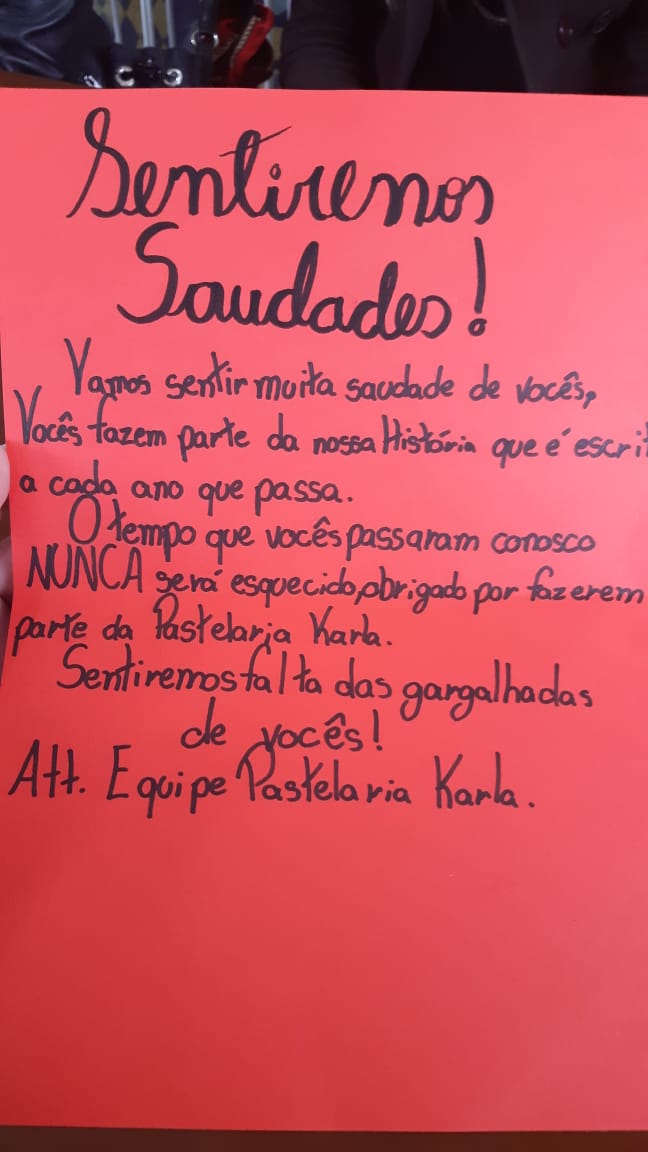 Sentiremos
Saudades!
Vamos sentir muita saudade de vocês,
Vocês fazem parte da nossa História que é escrit
a cada ano que passa.
O tempo que vocês passaram conosco
NUNCA será esquecido, obrigado por fazerem
parte da Pastelaria Karla.
Sentiremos falta das gargalhadas
de vocês!
Att. Equipe Pastelaria Karla.